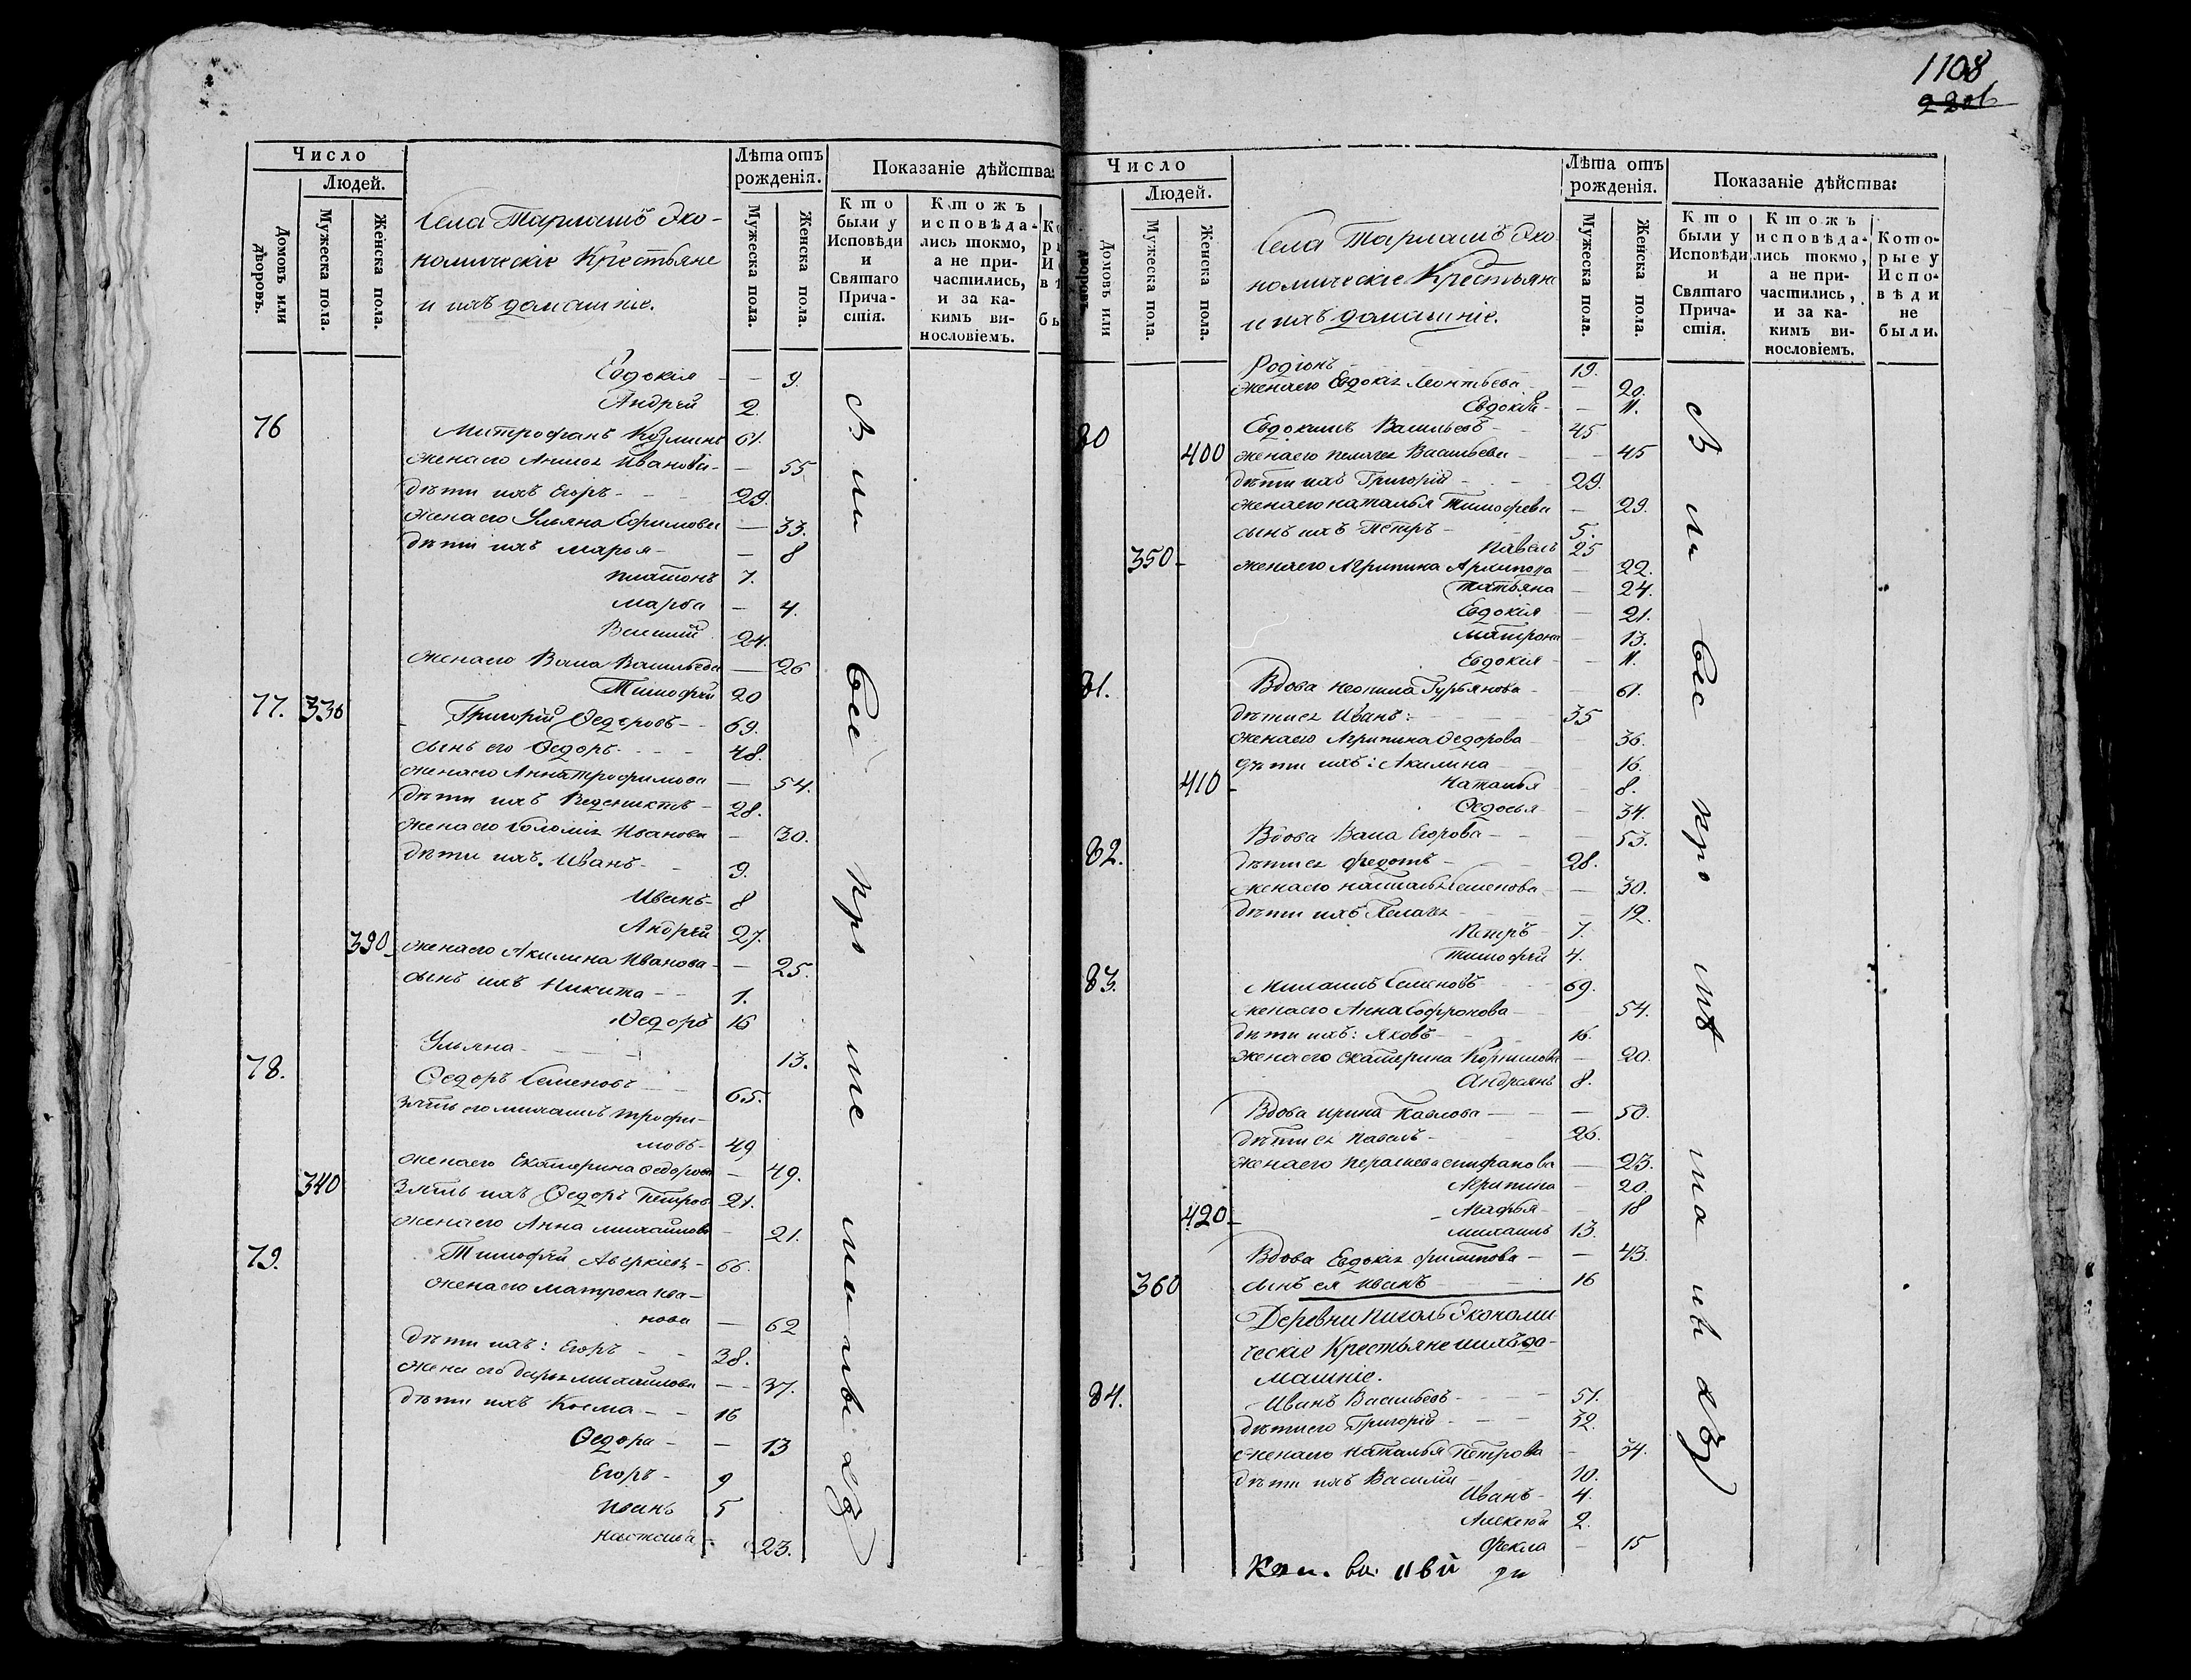 Число
Людей.
Домовъ или дворовъ.
Мужеска пола.
Женска пола.
Села Тарлашъ Эко-
номическіе Крестьяне
и ихъ домашніе.
Лѣта отъ
рожденія.
Мужеска пола.
Женска пола.
Показаніе дѣйства:
Кто
были у
Исповѣди
и
Святаго
Прича-
стія.
Ктожъ
исповѣда-
лись токмо,
а не при-
частились,
и за ка-
кимъ ви-
нословіемъ.
Евдокія - 9.
Андрей 2.
76 Митрофанъ 61.
жена его Ивановa - 55.
дѣти ихъ Егоръ - 29.
жена его Ульяна Ефимова - 33.
дѣти ихъ Марья - 8
Платонъ 7.
Марѳа - 4.
Василий 24.
жена его Васа Васильева - 26
Тимофѣй 20
77. 336 Григорій Ѳедоровъ - 69.
сынъ его Ѳедоръ - 48.
жена его Анна Трофимова - 54.
дѣти ихъ - 28.
жена его Соломія Иванова - 30.
дѣти ихъ. Иванъ - 9.
Иванъ - 8
Андрей 27.
390 жена его Акилина Иванова - 25.
сынъ ихъ Никита - 1.
Ѳедоръ 16
Ульяна - 13.
78. Ѳедоръ Семеновъ 65.
зять его Михаилъ Трофи-
мовъ - 49
жена его Екатерина Ѳедорова - 49.
340 Зять ихъ Ѳедоръ Петровъ 21.
жена его Анна Михайлова - 21.
79. Тимофѣй Аверкіевъ - 66.
жена его Матрона Ива-
нова - 62
дѣти ихъ: Егоръ - 38.
жена его Дарья Михайлова - 37.
дѣти ихъ Косма - 16
Ѳедора - 13
Егоръ - 9
Иванъ 5
Настасья - 23.
1108
Число
Людей.
Домовъ или дворовъ.
Мужеска пола.
Женска пола.
Села Тарлашъ Эко-
номическіе Крестьяне
и ихъ домашніе.
Лѣта отъ
рожденія.
Мужеска пола.
Женска пола.
Показаніе дѣйства:
Кто
были у
Исповѣди
и
Святаго
Прича-
стія.
Ктожъ
исповѣда-
лись токмо,
а не при-
частились,
и за ка-
кимъ ви-
нословіемъ.
Кото-
рые у
Испо-
вѣди
не
были.
Родіонъ 19.
жена его Евдокія Леонтьева - 20.
Евдокія - 11.
80 Евдокимъ Васильевъ - 45
400 жена его Пелагея Васильева - 45
дѣти ихъ Григорій - 29.
жена его Наталья Тимофеева - 29.
сынъ ихъ Петръ - 5.
Павелъ 25
350 жена его Агрипина Архипова - 22.
Татьяна - 24.
Евдокія - 21.
Матрона - 13.
Евдокія - 11.
81. Вдова Неонила Гурьянова - 61.
дѣти ея Иванъ: 35
жена его Агрипина Ѳедорова - 36.
дѣти ихъ: Акилина - 16.
410 Наталья - 8.
Ѳедосья - 34.
82. Вдова Васа Егорова - 53.
дѣти ея Федотъ - 28.
жена его Наталья Семенова - 30.
дѣти ихъ Пелагея - 12.
Петръ - 7.
Тимофѣй 4.
83. Михаилъ Семеновъ 69.
жена его Анна Софронова - 54.
дѣти ихъ: Яковъ - 16.
жена его Екатерина Корнилова - 20.
Андреянъ 8.
Вдова Ирина Павлова - 50.
дѣти ея Павелъ - 26.
жена его Епифанова - 23.
Агрипина - 20.
420 Марфья - 18
Михаилъ 13.
Вдова Евдокія Филипова - 43.
360 сынъ ея Иванъ 16
Деревни Экономи
ческіе Крестьяне и ихъ до-
машніе.
84. Иванъ Васильевъ - 51.
дѣти его Григорій - 32.
жена его Наталья Петрова - 34.
дѣти ихъ Василій 10.
Иванъ - 4.
Алексѣй 2.
Фекла - 15